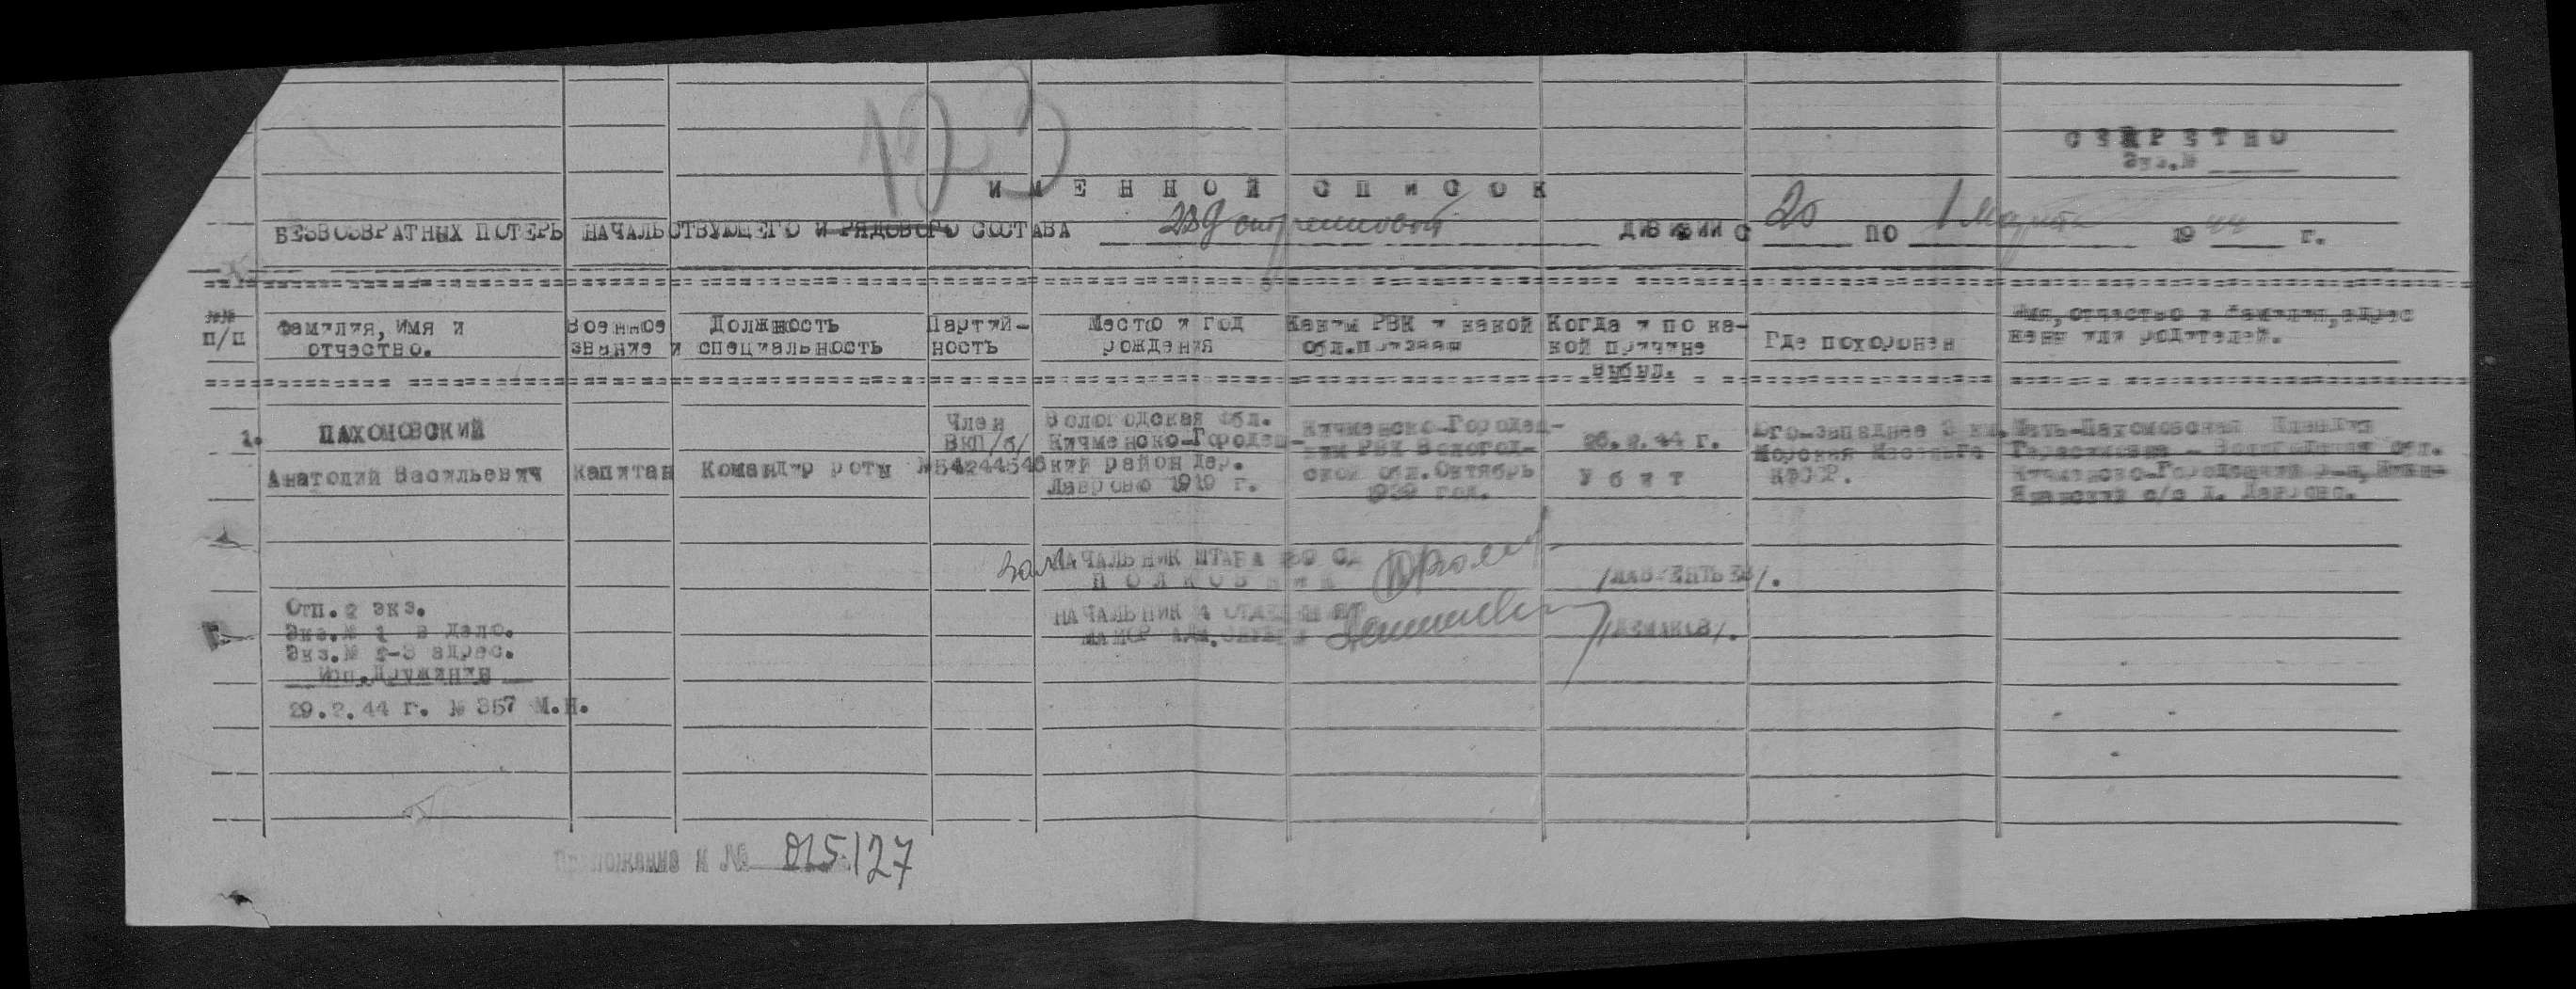 123
СЕКРЕТНО
Экз.№
ИМЕННОЙ СПИСОК
БЕЗВОЗВРАТНЫХ ПОТЕРЬ НАЧАЛЬСТВУЮЩЕГО И РЯДОВОГО СОСТАВА 289 стрелковой ДИВИЗИИ С 20 ПО 1 марта 1944 г.
№№ п/п
Фамилия, имя и
отчество.
Военное
звание и
Должность
специальность
Партий-
ность
Место и год
рождения
Каким РВК и какой
обл.призван
Когда и по ка-
кой причине
выбыл.
Где похоронен
Имя, отчество и фамилия, адрес
жены или родителей.
1.
ПАХОМОВСКИЙ
Анатолий Васильевич
капитан
Командир роты
Член
ВКП/б/
№5424454
Вологодская обл.
Кичменско-Городец-
кий район дер.
Лаврово 1919 г.
Кичменско-Городец-
ким РВК Вологод-
ской обл. Октябрь
1939 год.
26.2.44 г.
Убит
Юго-западнее 3 км.
Морская Масельга
КФССР.
Мать-Пахомовская
Вологодская обл.
Кичменско-Городецкий р-н,
с/с д. Лаврово.
Зам НАЧАЛЬНИК ШТАБА СД
ПОЛКОВНИК
/ЛАВРЕНТЬЕВ/.
НАЧАЛЬНИК 4 ОТДЕЛЕНИЯ
МАЙОР АДМ.СЛУЖБЫ
Отп.2 экз.
Экз.№ 1 в дело.
Экз.№ 2-й адрес.
Исп.Дружинин
29.2.44 г. № 357 М.Н.
Приложение к № 015127